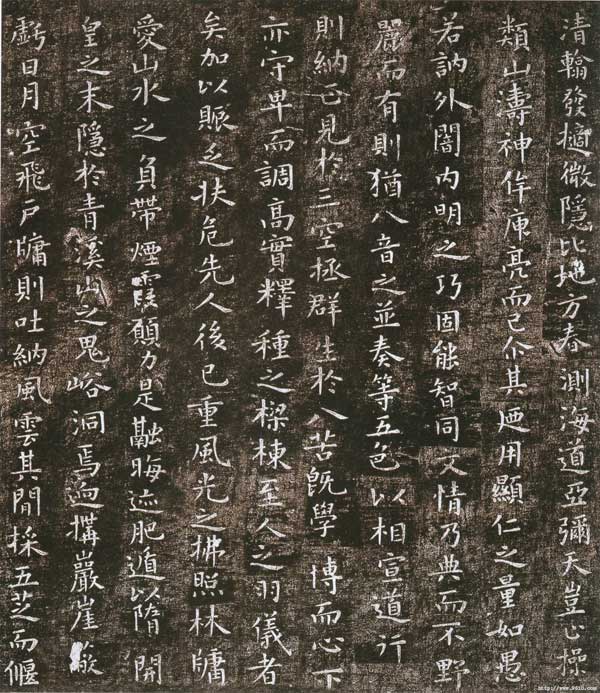 清翰發擿微隱比地方春測海道亞彌天豈止操
類山濤神侔庾亮而已尒其廸用顯仁之量如愚
若訥外闇內明之巧固能智同文情乃典而不野
麗而有則猶八音之並奏等五色以相宣道行
則納正見於三空拯群生於八苦旣學博而心下
亦守卑而調高實釋種之樑棟至人之羽儀者
矣加以賑乏扶危先人後已重風光之拂照林牖
愛山水之負帶煙霞願力是融晦迹肥遁以隋開
皇之末隱於青溪山之鬼峪洞焉迺搆巖崖蔽
虧日月空飛戶牖則吐納風雲其間採五芝而偃